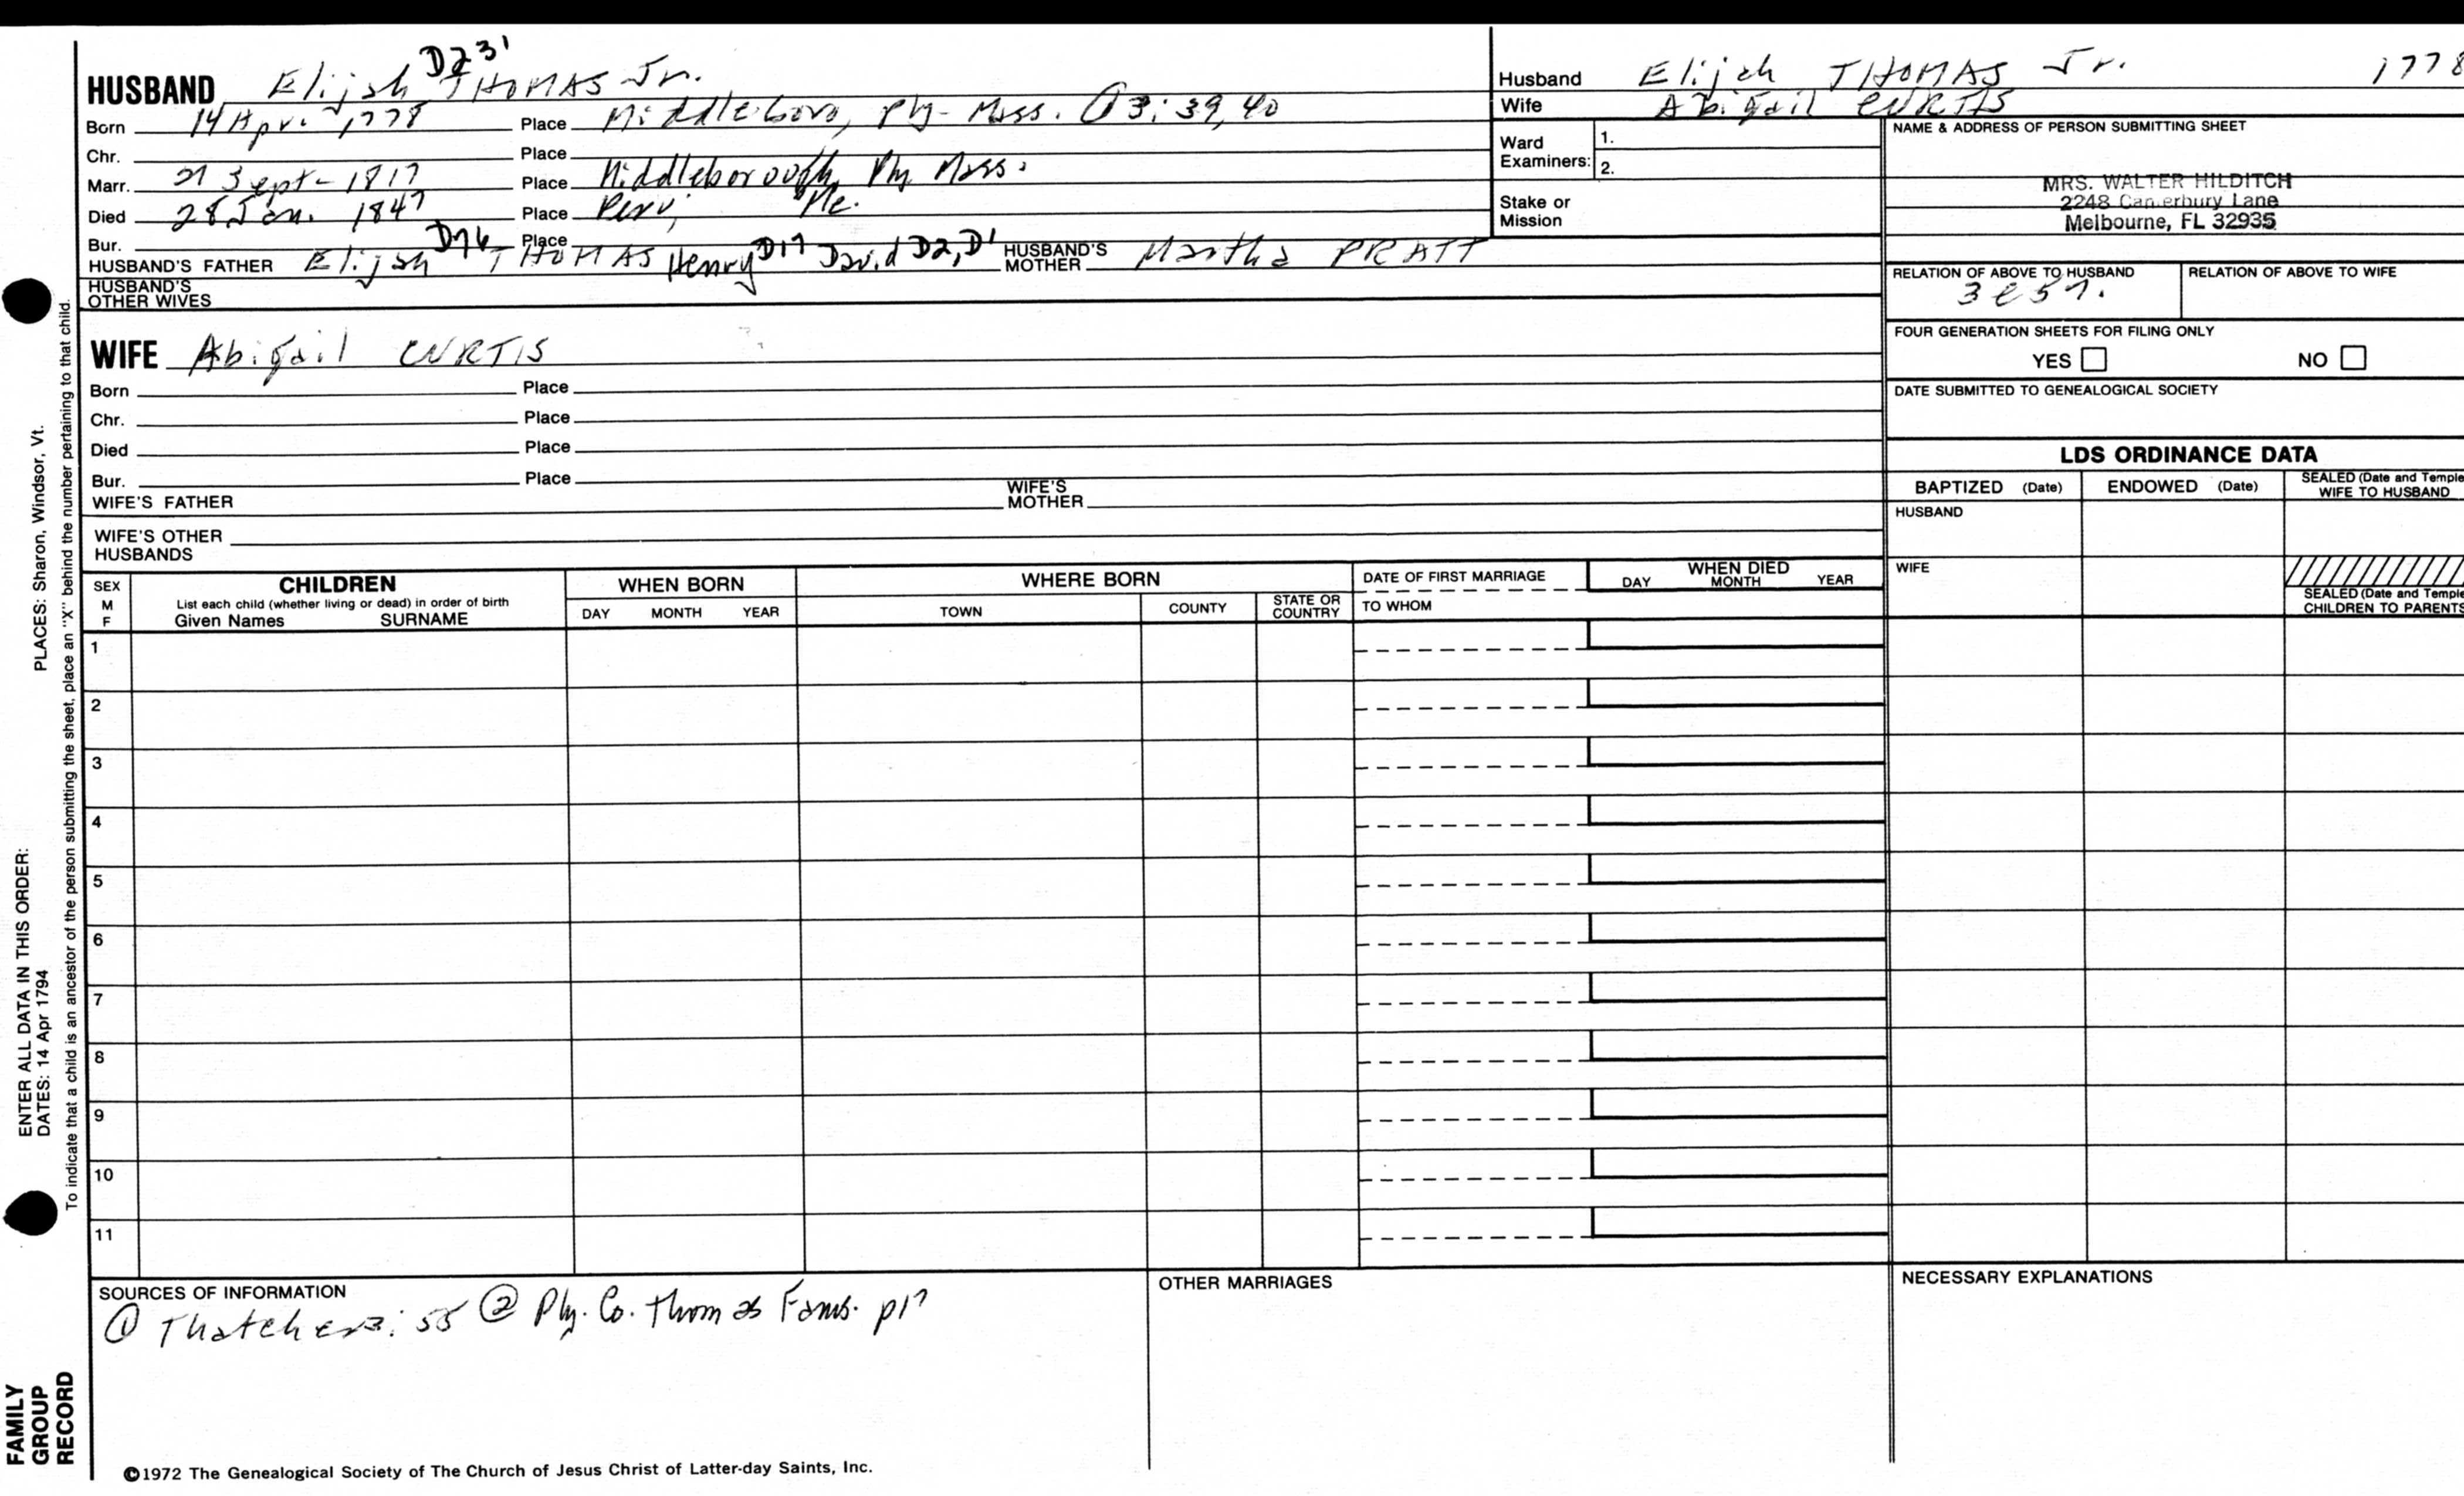 D231
HUSBAND Elijah THOMAS Jr.
Born 14 Apr. 1778 Place Middleboro, Ply- Mass. ① 3:39,40
Chr. Place
Marr. 21 Sept- 1817 Place Middleborough, Ply Mass.
Died 28 Jan. 1847 Place Peru, Me.
Bur. Place
HUSBAND'S FATHER Elijah D76 THOMAS Henry D17 David D2, D1 HUSBAND'S MOTHER Martha PRATT
HUSBAND'S
OTHER WIVES
WIFE Abigail CURTIS
Born Place
Chr. Place
Died Place
Bur. Place
WIFE'S FATHER WIFE'S MOTHER
WIFE'S OTHER
HUSBANDS
Husband Elijah THOMAS Jr. 1778
Wife Abigail CURTIS
Ward
Examiners: 1.
2.
Stake or
Mission
NAME & ADDRESS OF PERSON SUBMITTING SHEET
MRS. WALTER HILDITCH
2248 Canterbury Lane
Melbourne, FL 32935
RELATION OF ABOVE TO HUSBAND RELATION OF ABOVE TO WIFE
FOUR GENERATION SHEETS FOR FILING ONLY
YES NO
DATE SUBMITTED TO GENEALOGICAL SOCIETY
LDS ORDINANCE DATA
BAPTIZED (Date) ENDOWED (Date) SEALED (Date and Temple
WIFE TO HUSBAND
HUSBAND
WIFE
SEALED (Date and Temple
CHILDREN TO PARENTS
SEX
M
F
CHILDREN
List each child (whether living or dead) in order of birth
Given Names SURNAME
WHEN BORN
DAY MONTH YEAR
WHERE BORN
TOWN COUNTY STATE OR COUNTRY
DATE OF FIRST MARRIAGE
TO WHOM
WHEN DIED
DAY MONTH YEAR
1
2
3
4
5
6
7
8
9
10
11
SOURCES OF INFORMATION
① Thatcher 3:55 ② Ply. Co. Thomas Fams. p17
OTHER MARRIAGES
NECESSARY EXPLANATIONS
©1972 The Genealogical Society of The Church of Jesus Christ of Latter-day Saints, Inc.
PLACES: Sharon, Windsor, Vt.
ENTER ALL DATA IN THIS ORDER:
DATES: 14 Apr 1794
To indicate that a child is an ancestor of the person submitting the sheet, place an "X" behind the number pertaining to that child.
FAMILY
GROUP
RECORD